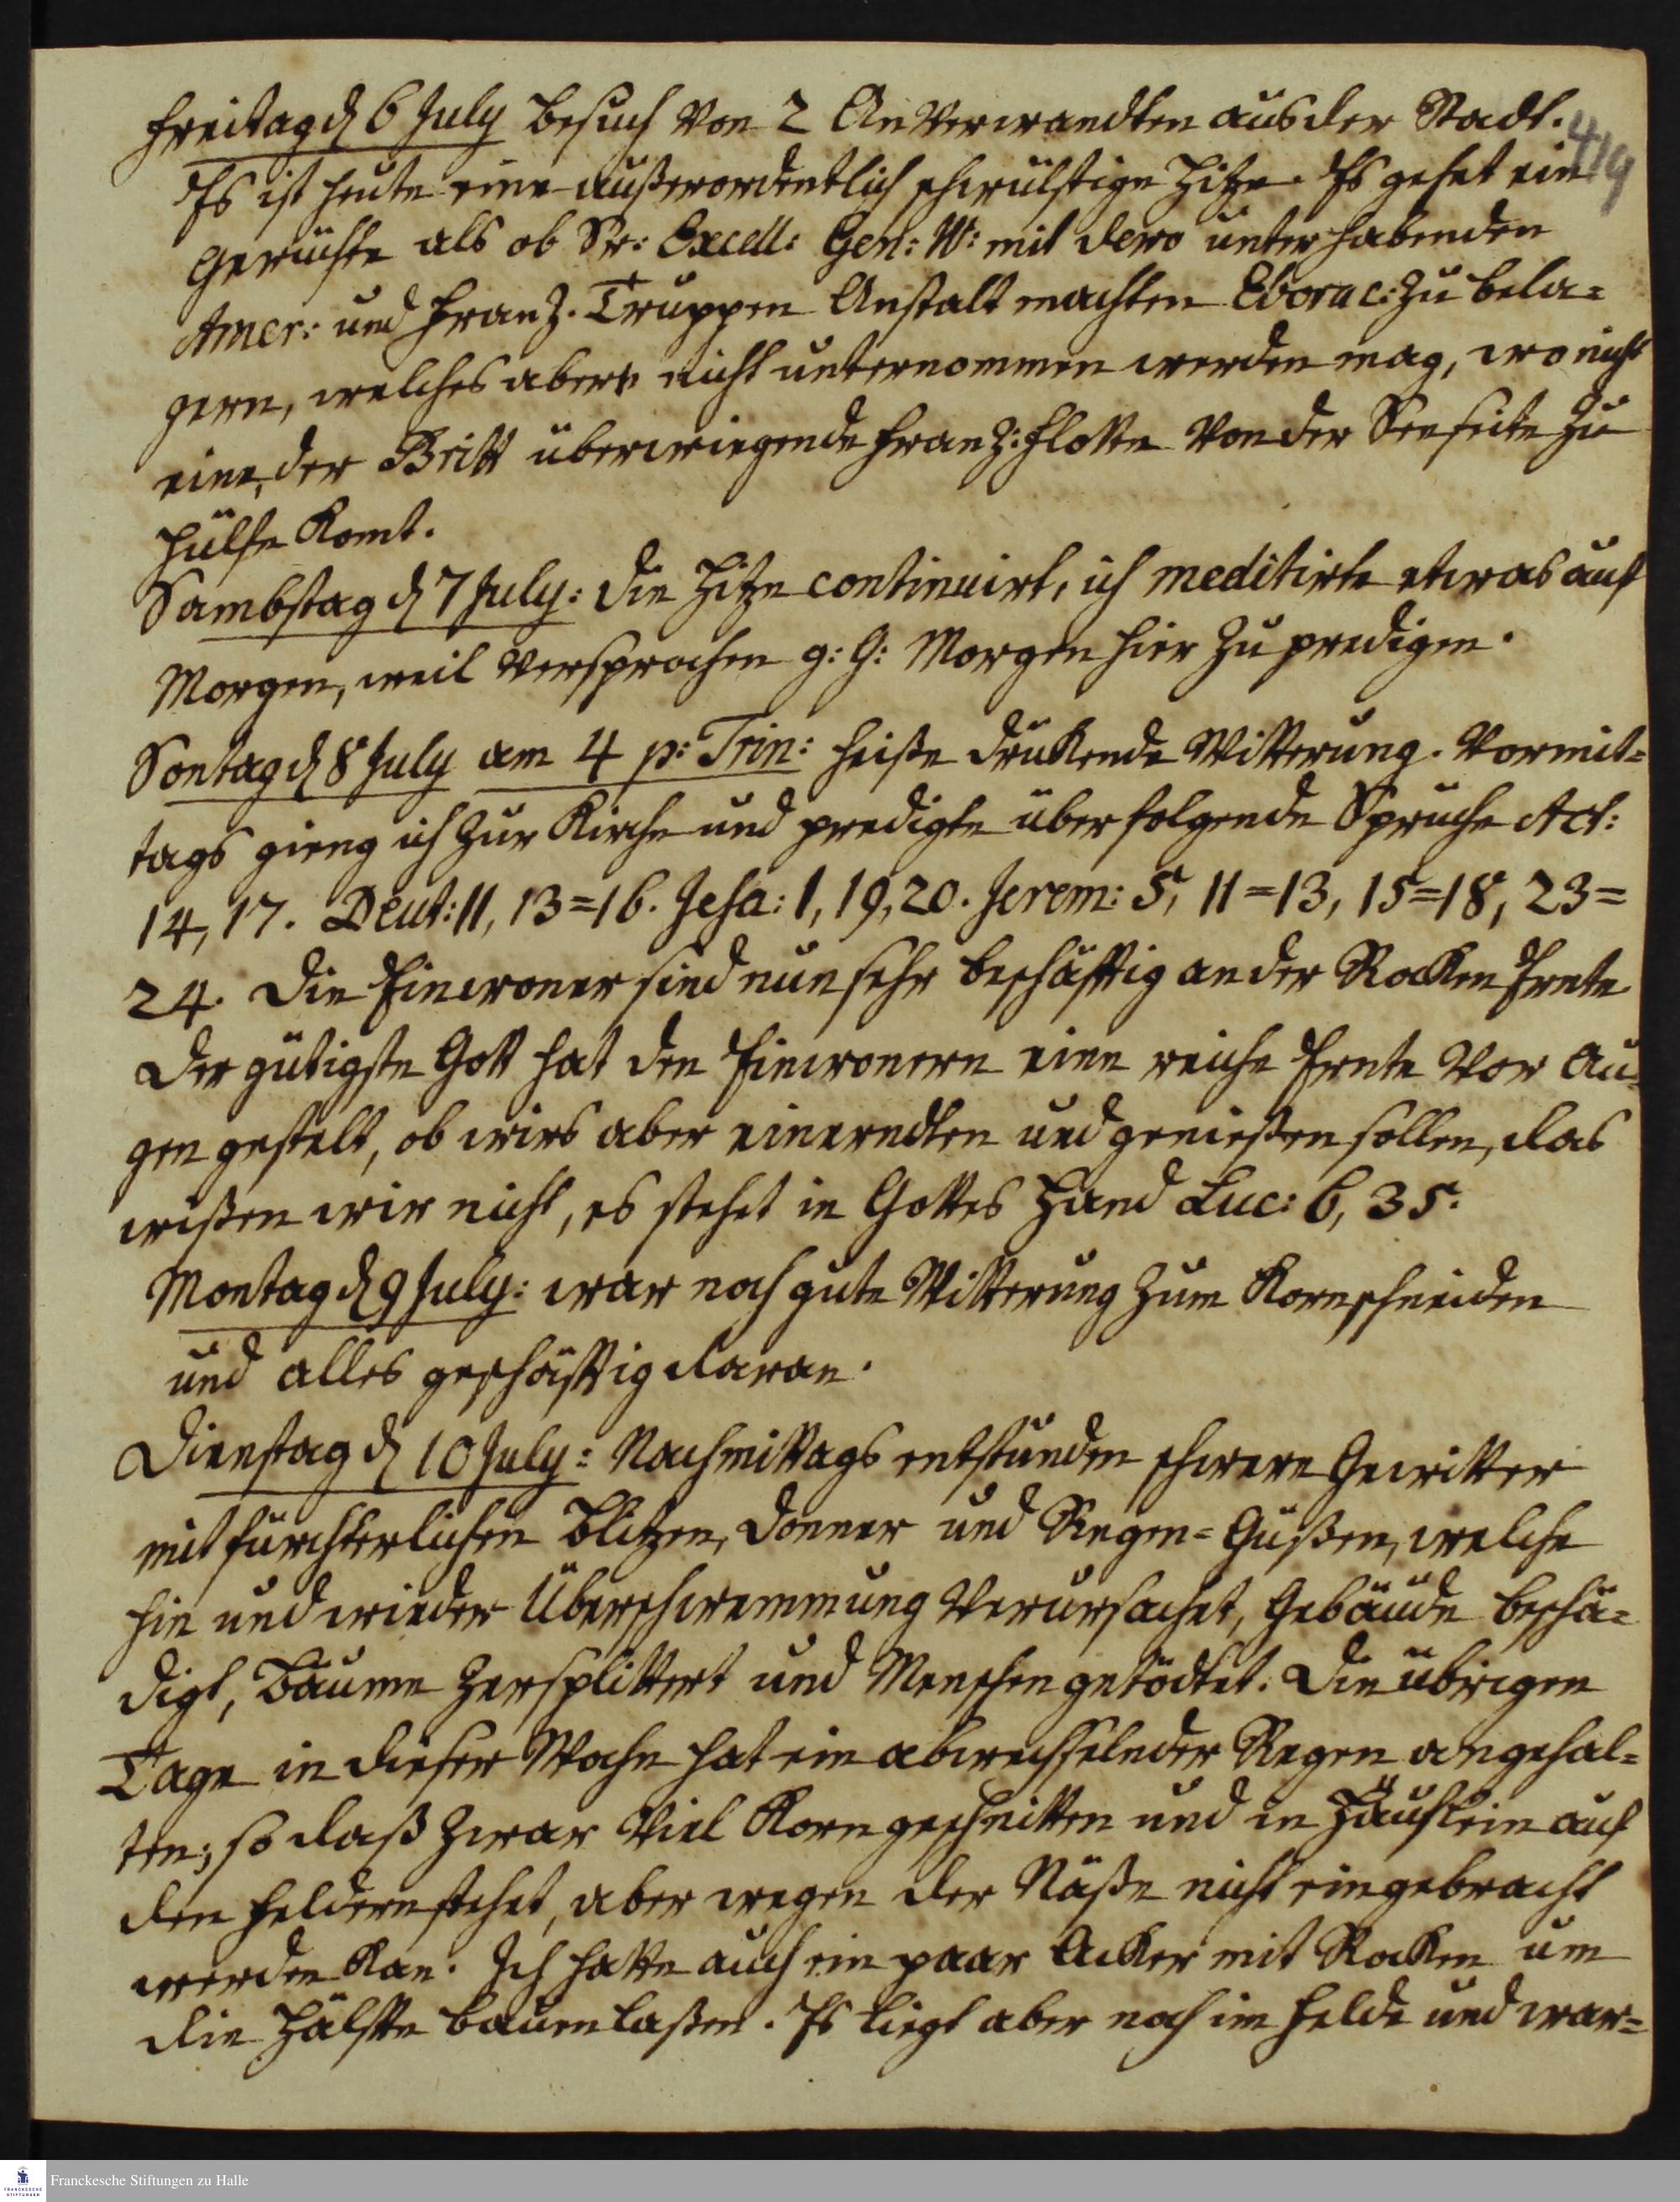 Freitag d 6 July Besuch von 2 Anverwandten aus der Stadt.
419
Es ist heute eine außerordentlich schwülstige Hitze. Es gehet ein
Gerüchte als ob Sr: Excell: Gen: W: mit dero unterhabenden
Amer: und Franz. Truppen Anstalt machten Eborac: zu bela=
gern, welches aber nicht unternommen werden mag, wo nicht
eine, der Britt überwiegende Franz: Flotte von der Seeseite zu
Hülfe komt.
Sambstag d 7 July: die Hitze continuirt, ich meditirte etwas auf
Morgen, weil versprochen g: G: Morgen hier zu predigen.
Sontag d 8 July am 4 p: Trin: heiße drükende Witterung. Vormit=
tags gieng ich zur Kirche und predigte über folgende Sprüche Act:
14, 17. Deut: 11, 13=16. Jesa: 1, 19, 20. Jerem: 5, 11=13, 15=18, 23=
24. Die Einwoner sind nun sehr beschäftig an der Rocken Ernte
Der gütigste Gott hat den Einwonern eine reiche Ernte vor Au=
gen gestelt, ob wirs aber einerndten und genießen sollen, das
wißen wir nicht, es stehet in Gottes Hand Luc: 6, 35.
Montag d 9 July: war noch gute Witterung zum Kornschneiden
und alles geschäftig daran.
Dienstag d 10 July: Nachmittags entstunden schwere Gewitter
mit fürchterlichen Blitzen, Donner und Regen=Güßen, welche
hin und wieder Überschwemmung verursachet, Gebäude beschä=
digt, Bäume zersplittert und Menschen getödtet. Die übrigen
Tage in dieser Woche hat ein abwechsselnder Regen angehal=
ten; so daß zwar viel Korn geschnitten und in Häuflein auf
den Feldern stehet, aber wegen der Näße nicht eingebracht
werden kan. Ich hatte auch ein paar Acker mit Rocken um
die Hälfte bauen laßen. Es liegt aber noch im Felde und war=
FRANCKESCHE STIFTUNGEN
Franckesche Stiftungen zu Halle